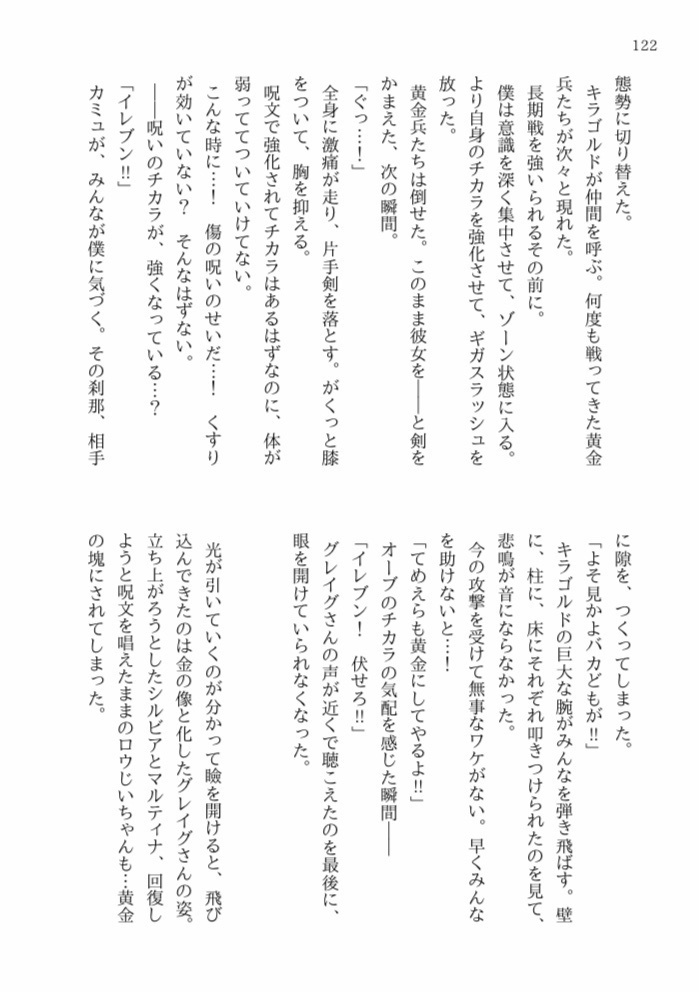 122
態勢に切り替えた。
　キラゴルドが仲間を呼ぶ。何度も戦ってきた黄金
兵たちが次々と現れた。
　長期戦を強いられるその前に。
　僕は意識を深く集中させて、ゾーン状態に入る。
より自身のチカラを強化させて、ギガスラッシュを
放った。
　黄金兵たちは倒せた。このまま彼女を――と剣を
かまえた、次の瞬間。
「ぐっ…！」
　全身に激痛が走り、片手剣を落とす。がくっと膝
をついて、胸を抑える。
　呪文で強化されてチカラはあるはずなのに、体が
弱っててついていけてない。
　こんな時に…！　傷の呪いのせいだ…！　くすり
が効いていない？　そんなはずない。
　――呪いのチカラが、強くなっている…？
「イレブン‼」
　カミュが、みんなが僕に気づく。その刹那、相手
に隙を、つくってしまった。
「よそ見かよバカどもが‼」
　キラゴルドの巨大な腕がみんなを弾き飛ばす。壁
に、柱に、床にそれぞれ叩きつけられたのを見て、
悲鳴が音にならなかった。
　今の攻撃を受けて無事なワケがない。早くみんな
を助けないと…！
「てめえらも黄金にしてやるよ‼」
　オーブのチカラの気配を感じた瞬間――
「イレブン！　伏せろ‼」
　グレイグさんの声が近くで聴こえたのを最後に、
眼を開けていられなくなった。
　光が引いていくのが分かって瞼を開けると、飛び
込んできたのは金の像と化したグレイグさんの姿。
立ち上がろうとしたシルビアとマルティナ、回復し
ようと呪文を唱えたままのロウじいちゃんも…黄金
の塊にされてしまった。